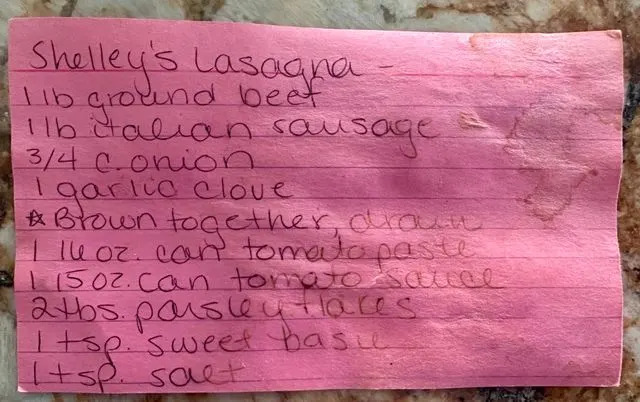 Shelley's Lasagna -
1 lb ground beef
1 lb italian sausage
3/4 c. onion
1 garlic clove
☆ Brown together, drain
1 16 oz. can tomato paste
1 15 oz. can tomato sauce
2 tbs. parsley flakes
1 tsp. sweet basil
1 tsp. salt